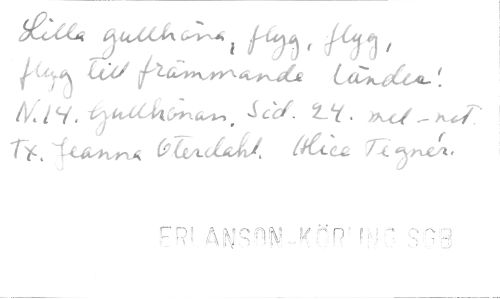 Lilla gullhöna, flyg, flyg,
flyg till främmande länder!
N.14. Gullhönan. Sid. 24. mel-not.
Tx. Jeanna Oterdahl. Alice Tegnér.
ERLANSON-KÖRLING SGB